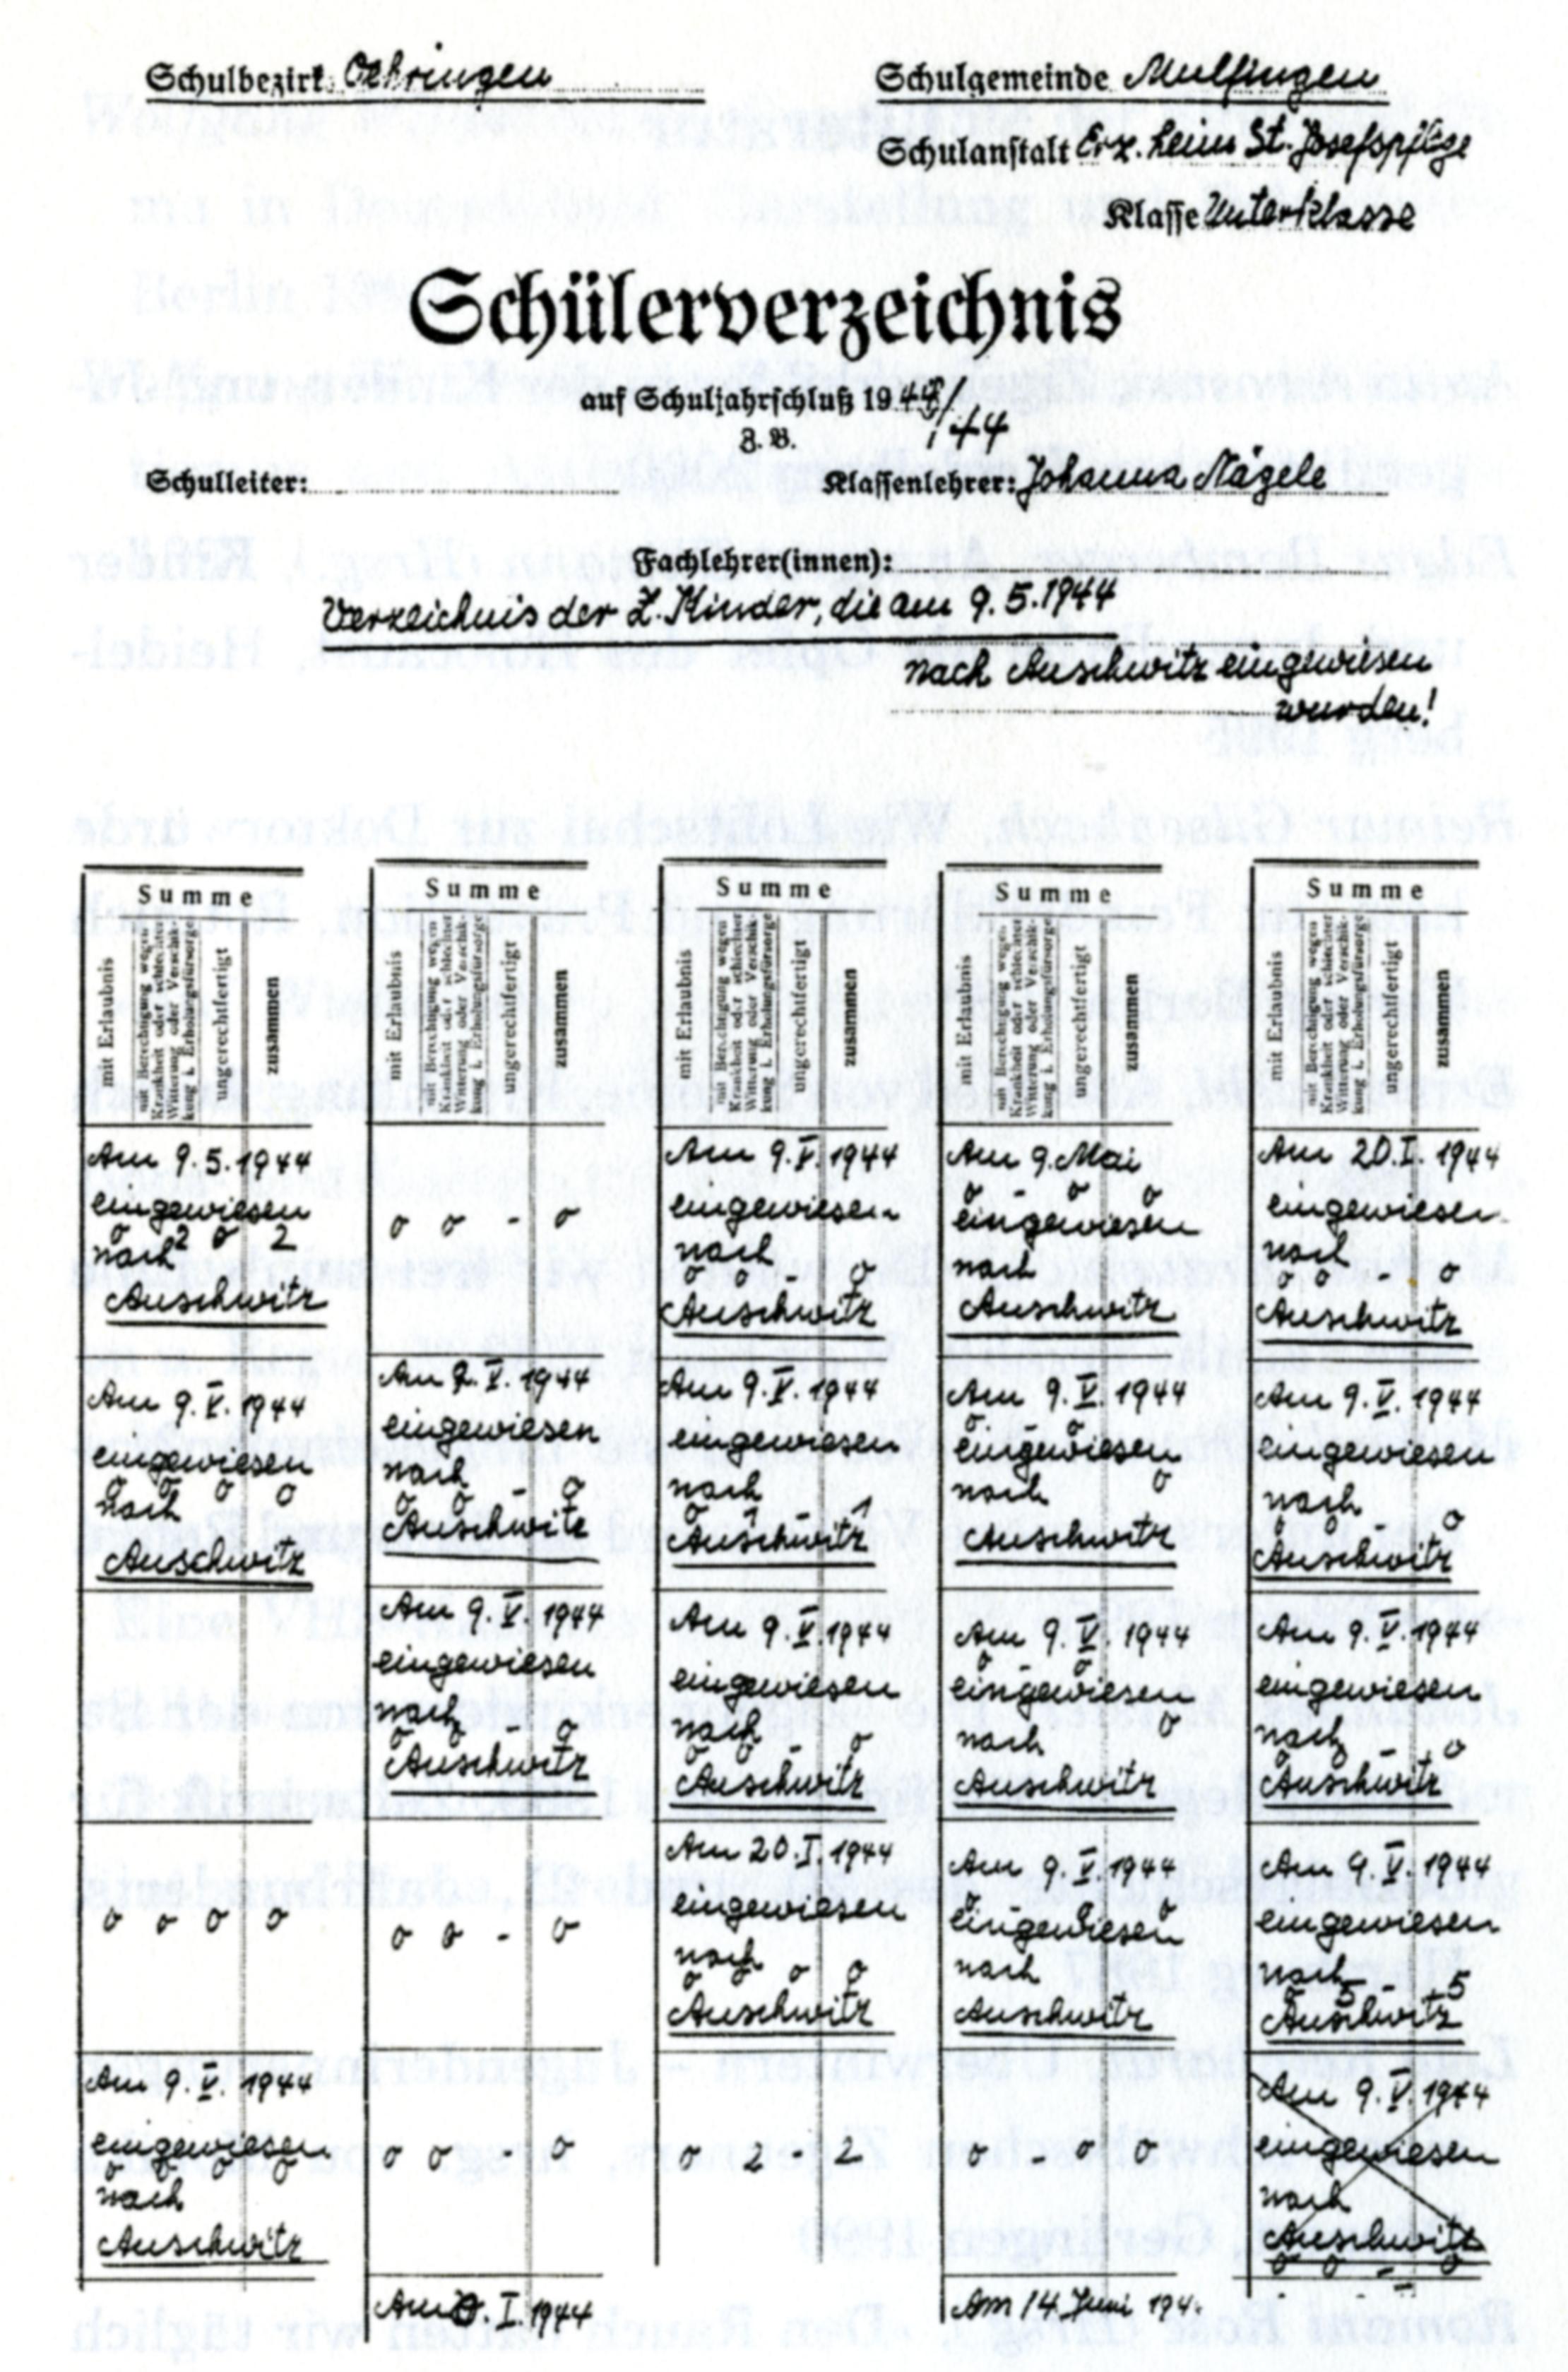 Schulbezirk: Oehringen
Schulgemeinde Mulfingen
Schulanstalt Erz. heim St. Josefspflege
Klasse Unterklasse
Schülerverzeichnis
auf Schuljahrschluß 1943/44
Z. B.
Schulleiter:
Klassenlehrer: Johanna Nägele
Fachlehrer(innen):
Verzeichnis der Z. Kinder, die am 9.5.1944
nach Auschwitz eingewiesen
wurden!
Summe
mit Erlaubnis
mit Berechtigung wegen
Krankheit oder schlechter
Witterung oder Verschik-
kung i. Erholungsfürsorge
ungerechtfertigt
zusammen
Am 9.5.1944
eingewiesen
0 2 0 2
nach
Auschwitz
Am 9.V.1944
eingewiesen
0 0 0 0
nach
Auschwitz
0 0 0 0
Am 9.V.1944
eingewiesen
0 0 0 0
nach
Auschwitz
Summe
mit Erlaubnis
mit Berechtigung wegen
Krankheit oder schlechter
Witterung oder Verschik-
kung i. Erholungsfürsorge
ungerechtfertigt
zusammen
0 0 - 0
Am 9.V.1944
eingewiesen
nach
0 0 - 0
Auschwitz
Am 9.V.1944
eingewiesen
nach
0 0 - 0
Auschwitz
0 0 - 0
0 0 - 0
Am .I.1944
Summe
mit Erlaubnis
mit Berechtigung wegen
Krankheit oder schlechter
Witterung oder Verschik-
kung i. Erholungsfürsorge
ungerechtfertigt
zusammen
Am 9.V.1944
eingewiesen
nach
0 0 - 0
Auschwitz
Am 9.V.1944
eingewiesen
nach
0 1 - 1
Auschwitz
Am 9.V.1944
eingewiesen
nach
0 0 - 0
Auschwitz
Am 20.I.1944
eingewiesen
nach
0 0 0 0
Auschwitz
0 2 - 2
Summe
mit Erlaubnis
mit Berechtigung wegen
Krankheit oder schlechter
Witterung oder Verschik-
kung i. Erholungsfürsorge
ungerechtfertigt
zusammen
Am 9. Mai
0 - 0 0
eingewiesen
nach
Auschwitz
Am 9.V.1944
0 - 0
eingewiesen
nach 0
Auschwitz
Am 9.V.1944
0 - 0
eingewiesen
nach 0
Auschwitz
Am 9.V.1944
eingewiesen
nach
Auschwitz
0 - 0 0
Am 14. Juni 194.
Summe
mit Erlaubnis
mit Berechtigung wegen
Krankheit oder schlechter
Witterung oder Verschik-
kung i. Erholungsfürsorge
ungerechtfertigt
zusammen
Am 20.I.1944
eingewiesen
nach
0 0 - 0
Auschwitz
Am 9.V.1944
eingewiesen
nach
0 0 - 0
Auschwitz
Am 9.V.1944
eingewiesen
nach
0 0 - 0
Auschwitz
Am 9.V.1944
eingewiesen
nach
0 5 - 5
Auschwitz
Am 9.V.1944
eingewiesen
nach
Auschwitz
0 0 - 0